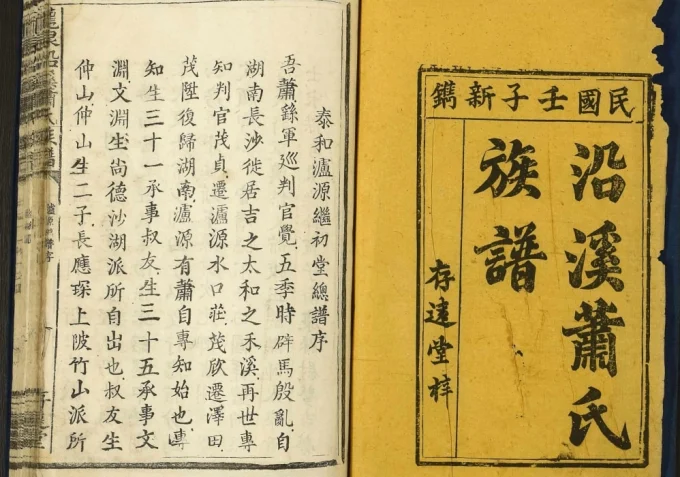 民國壬子新鐫
沿溪蕭氏
族譜
存遠堂梓
泰和瀘源繼初堂總譜序
吾蕭繇軍巡判官覺五季時辟馬殷亂自
湖南長沙徙居吉之太和之禾溪再世專
知判官茂貞遷瀘源水口莊茂欣遷澤田
茂陞復歸湖南瀘源有蕭自專知始也專
知生三十一承事叔友生三十五承事文
淵文淵生尚德沙湖派所自出也叔友生
仲山仲山生二子長應琛上陂竹山派所